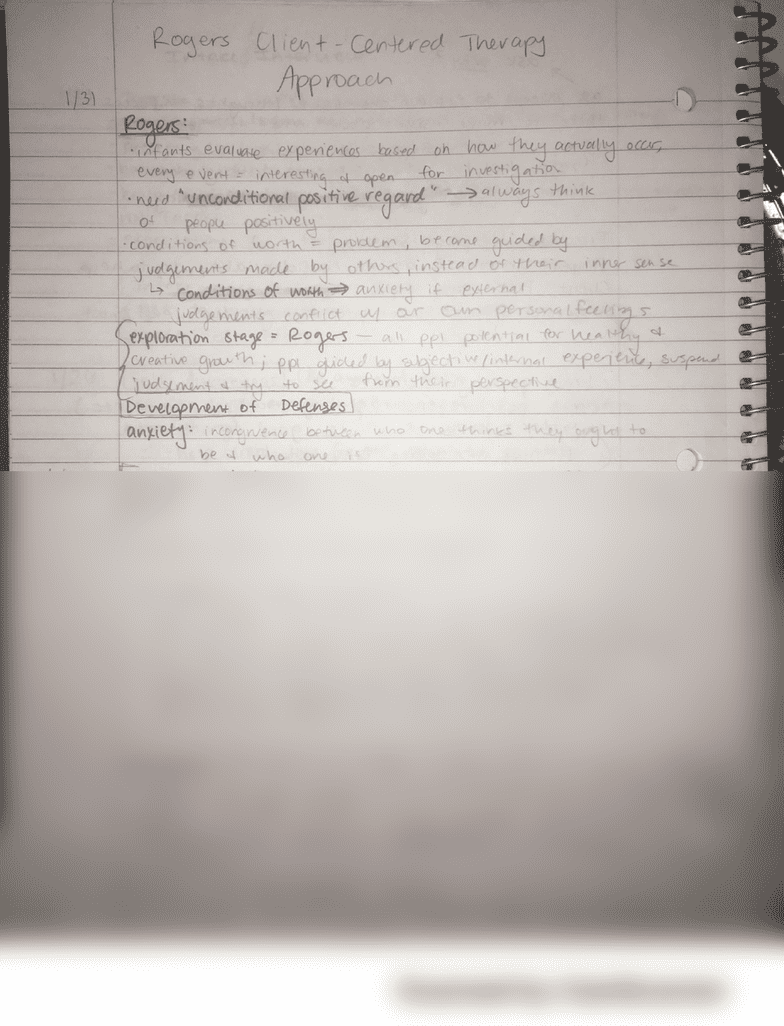 Rogers Client-Centered Therapy
Approach
1/31
Rogers:
·infants evaluate experiences based on how they actually occur,
every event = interesting & open for investigation
·need "unconditional positive regard" → always think
of people positively
·conditions of worth = problem, become guided by
judgements made by others, instead of their inner sense
↳ conditions of worth ⇒ anxiety if external
judgements conflict w/ our own personal feelings
exploration stage = Rogers – all ppl potential for healthy &
creative growth; ppl guided by subjective/internal experience, suspend
judgement & try to see from their perspective
Development of Defenses
anxiety: incongruence between who one thinks they ought to
be & who one is